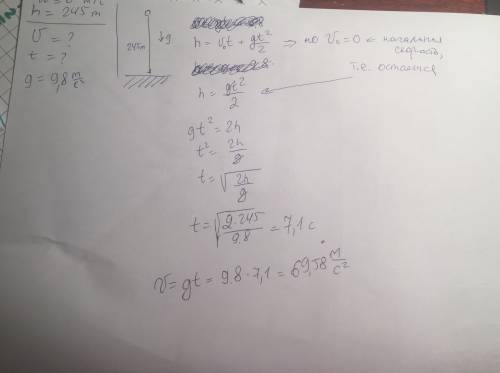 h = 245 m
V = ?
t = ?
g = 9,8 м/с²
245m
g
h = V₀t + gt²/2 ⇒ но V₀ = 0 ← начальная скорость,
т.е. остается
h = gt²/2
gt² = 2h
t² = 2h/g
t = √(2h/g)
t = √(2·245/9.8) = 7,1 c
V = gt = 9.8 · 7,1 = 69,58 м/с²